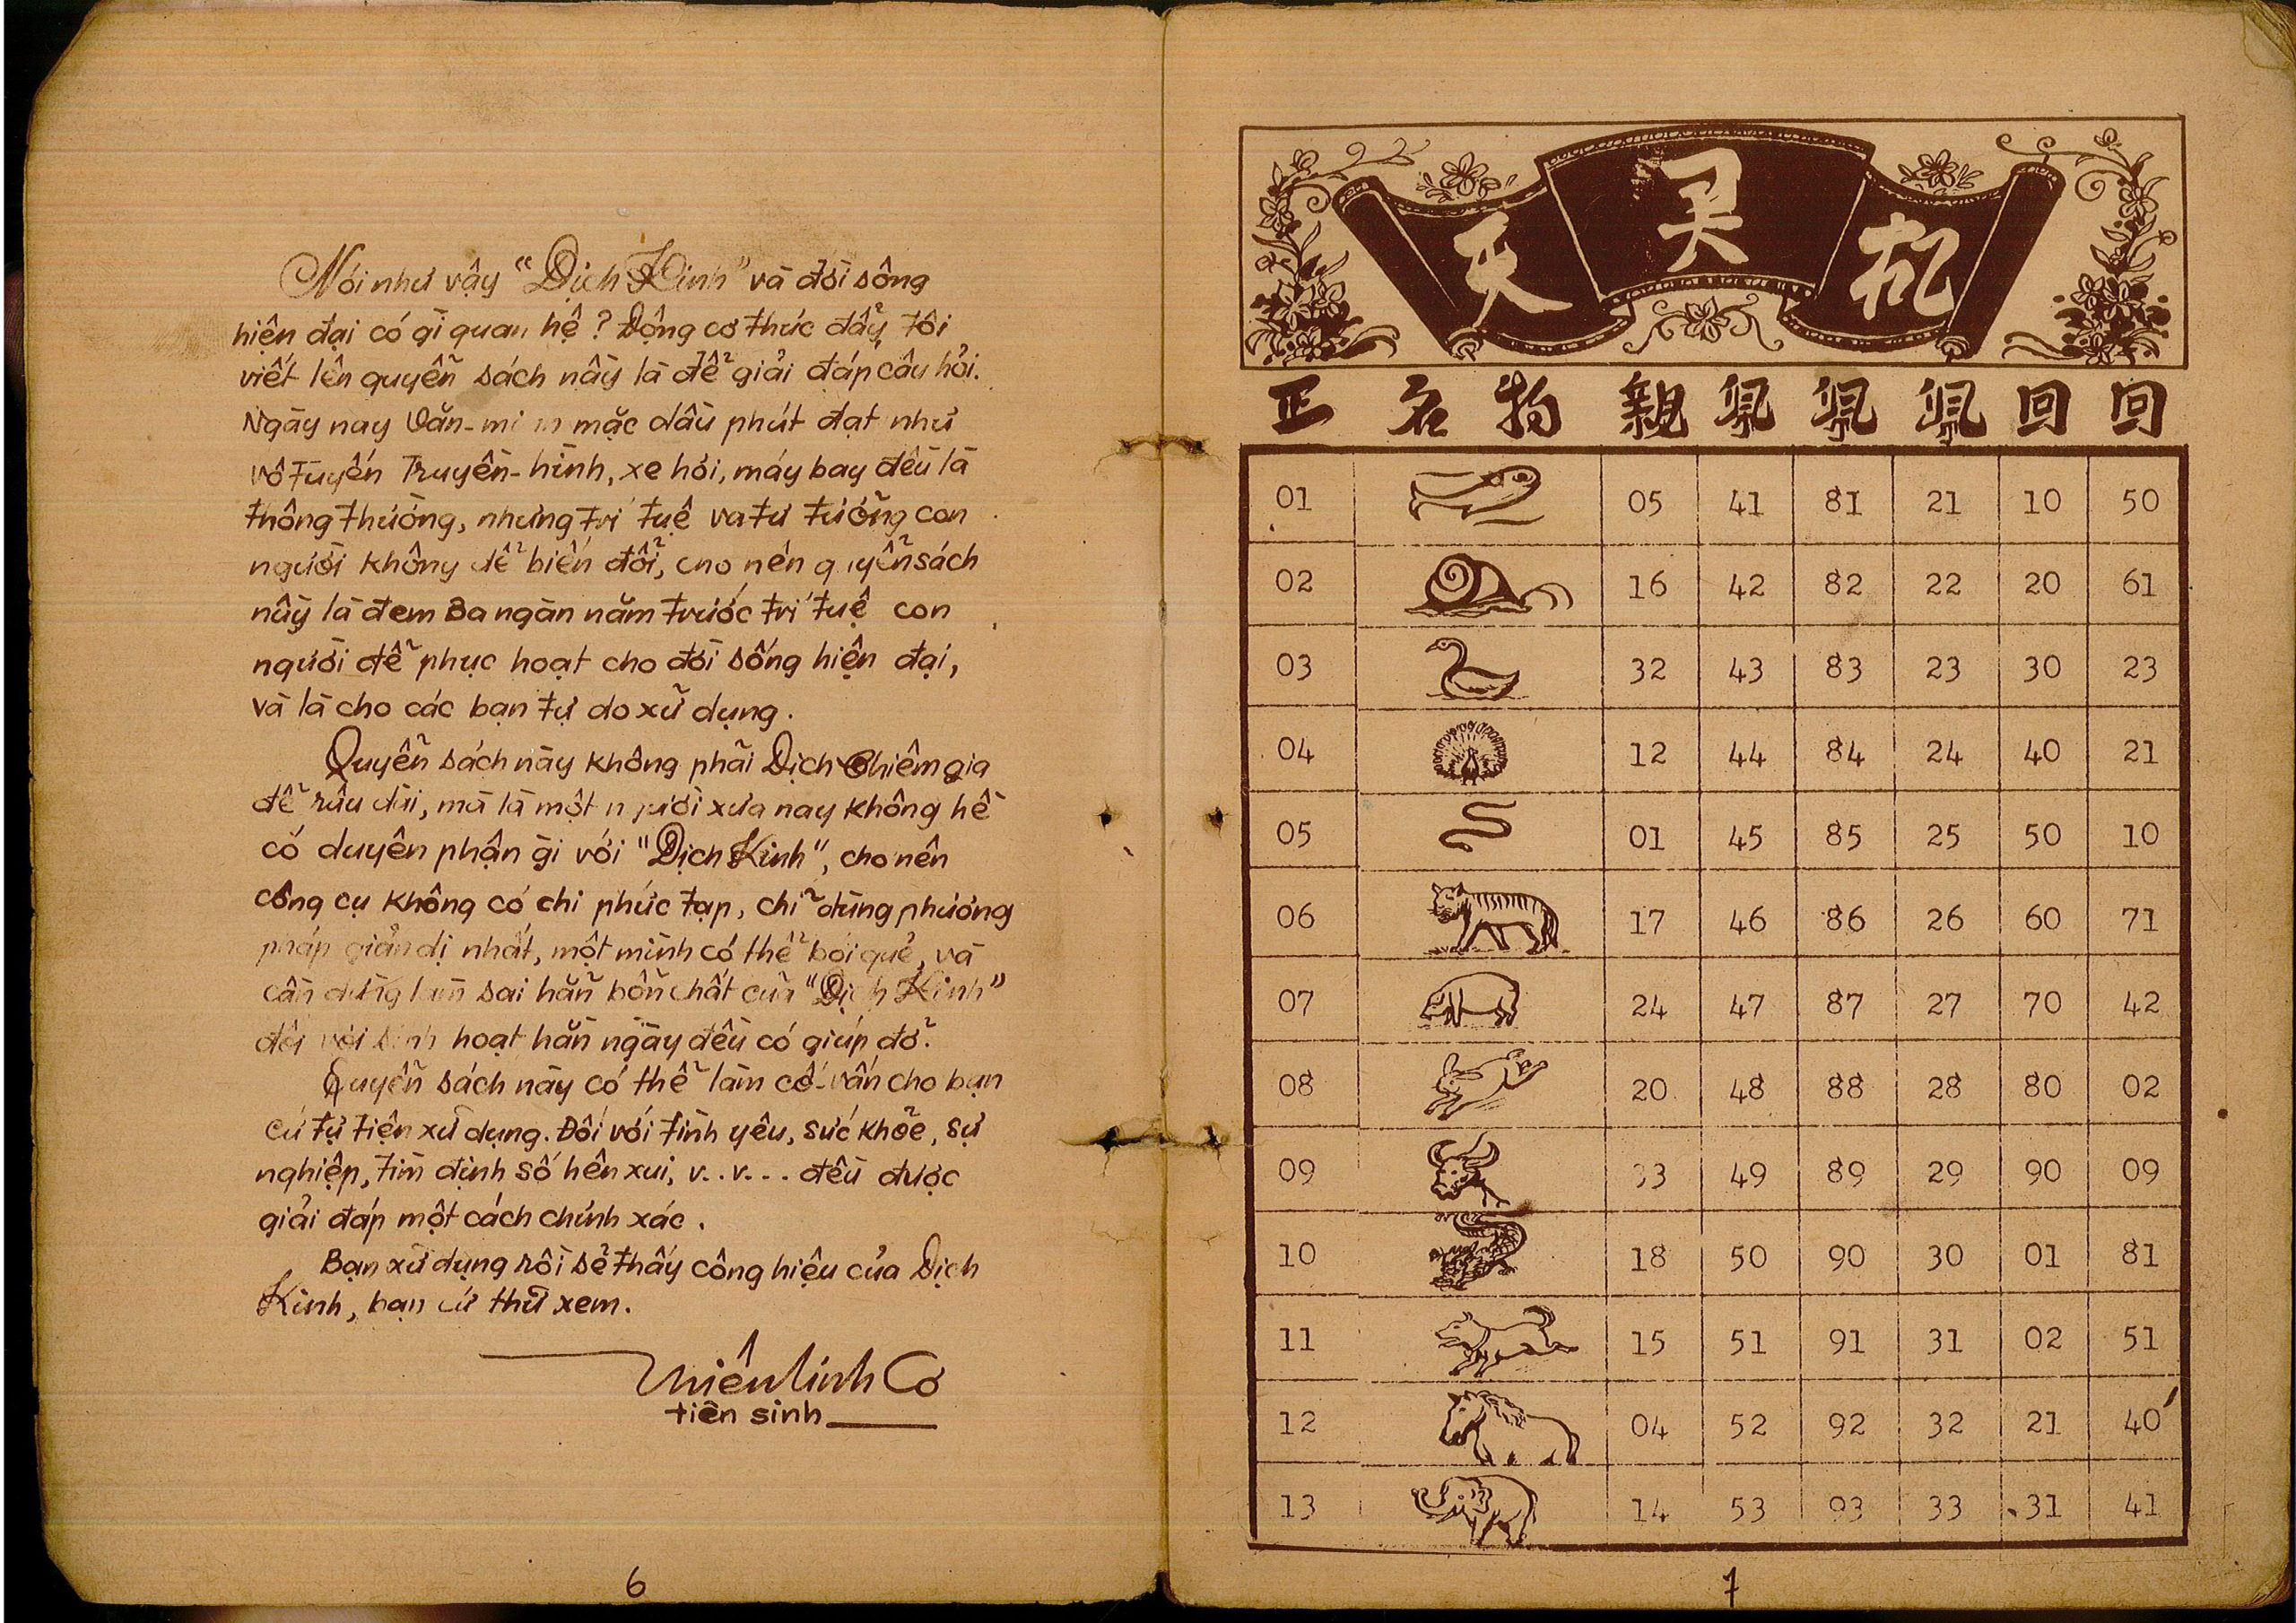 Nói như vậy "Dịch Kinh" và đời sống
hiện đại có gì quan hệ? Động cơ thúc đẩy tôi
viết lên quyển sách nầy là để giải đáp câu hỏi.
Ngày nay Văn-mi mặc dầu phút đạt như
vô tuyến Truyền-hình, xe hơi, máy bay đều là
thông thường, nhưng trí tuệ và tư tưởng con
người không dễ biến đổi, cho nên quyển sách
nầy là đem Ba ngàn năm trước trí tuệ con
người để phục hoạt cho đời sống hiện đại,
và là cho các bạn tự do xữ dụng.
Quyển sách này không phãi Dịch Chiêm gia
để râu dài, mà là một người xưa nay không hề
có duyên phận gì với "Dịch Kinh", cho nên
công cụ không có chi phức tạp, chĩ dùng phương
pháp giản dị nhất, một mình có thể bói quẻ, và
cần dùng làm sai hẵn bổn chất cũa "Dịch Kinh"
đối với sinh hoạt hằn ngày đều có giúp đở.
Quyển sách này có thể làm cố-vấn cho bạn
cứ tự tiện xử dụng. Đối với tình yêu, sức khõe, sự
nghiệp, tìm định số hên xui, v..v... đều được
giải đáp một cách chính xác.
Bạn xử dụng rồi sẻ thấy công hiệu của Dịch
Kinh, bạn cứ thữ xem.
Thiên linh Cơ
tiên sinh
6
天 灵 机
正 名 物 親 回 回
01 05 41 81 21 10 50
02 16 42 82 22 20 61
03 32 43 83 23 30 23
04 12 44 84 24 40 21
05 01 45 85 25 50 10
06 17 46 86 26 60 71
07 24 47 87 27 70 42
08 20 48 88 28 80 02
09 33 49 89 29 90 09
10 18 50 90 30 01 81
11 15 51 91 31 02 51
12 04 52 92 32 21 40
13 14 53 93 33 31 41
7